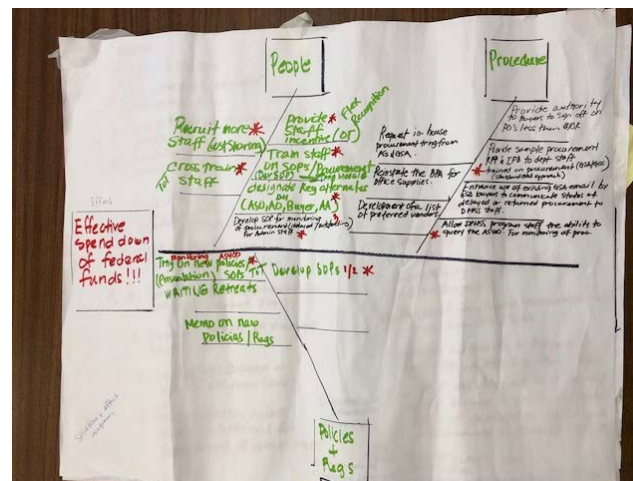 People
Procedure
Recruit more *
Staff
Cross train *
Staff
ToT
Provide *
Staff
incentive (OT)
Flex
Recognition
Train staff *
on SOPs / Procurement
designate Reg alternates
(ASO, AD, Buyer, AA)
Develop SOP for monitoring
of procurement
for Admin Staff *
Request in house
procurement trng from
Reinstate the BPA for
office supplies.
Development of a list
of preferred vendors
Provide authority
to buyers to sign off on
PO's less than
Provide sample procurement
RFP & IFB to dept staff
* trained on procurement
Enhance use of existing email by
to communicate status of
delayed or returned procurement to
staff.
Allow program staff the ability to
* query the AS400. For monitoring of proc.
Effect
Effective
Spend down
of federal
funds!!!
monitoring AS400 *
Trng on new policies / ToT
(Presentation) SOPs
WRITING Retreats
Develop SOPs 1/2 *
Memo on new
Policies / Regs
Policies
+
Regs